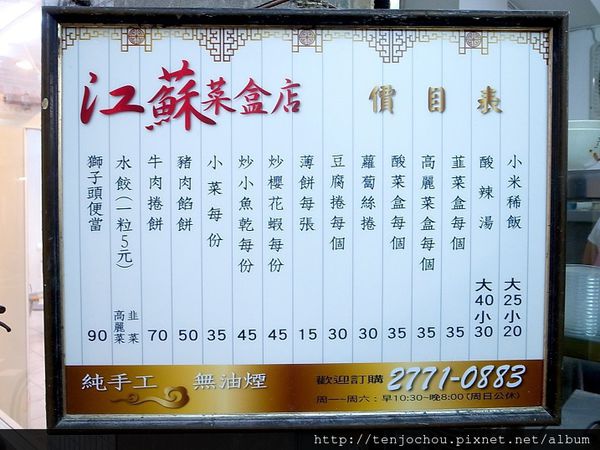 江蘇菜盒店 價目表
小米稀飯 大25小20
酸辣湯 大40小30
韮菜盒每個 35
高麗菜盒每個 35
酸菜盒每個 35
蘿蔔絲捲 30
豆腐捲每個 30
薄餅每張 15
炒櫻花蝦每份 45
炒小魚乾每份 45
小菜每份 35
豬肉餡餅 50
牛肉捲餅 70
水餃(一粒5元) 韭菜 高麗菜
獅子頭便當 90
純手工 無油煙
歡迎訂購 2771-0883
周一~周六：早10:30~晚8:00(周日公休)
http://tenjochou.pixnet.net/album